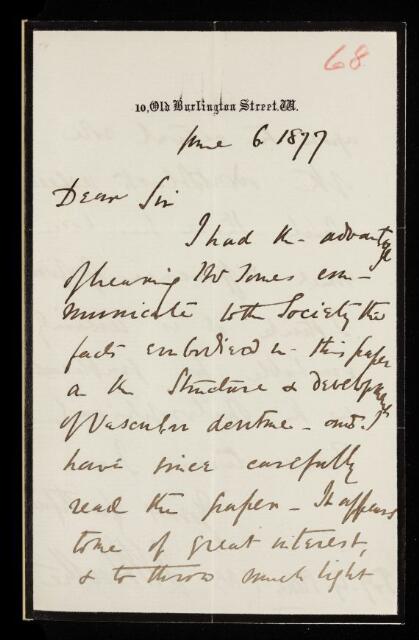 68
10, Old Burlington Street. W.
June 6. 1877
Dear Sir
I had the advantage
of hearing Mr Tomes com-
municate to the Society the
facts embodied in this paper
on the Structure & development
of Vascular dentine - and I
have since carefully
read the paper - It appears
to me of great interest,
& to throw much light